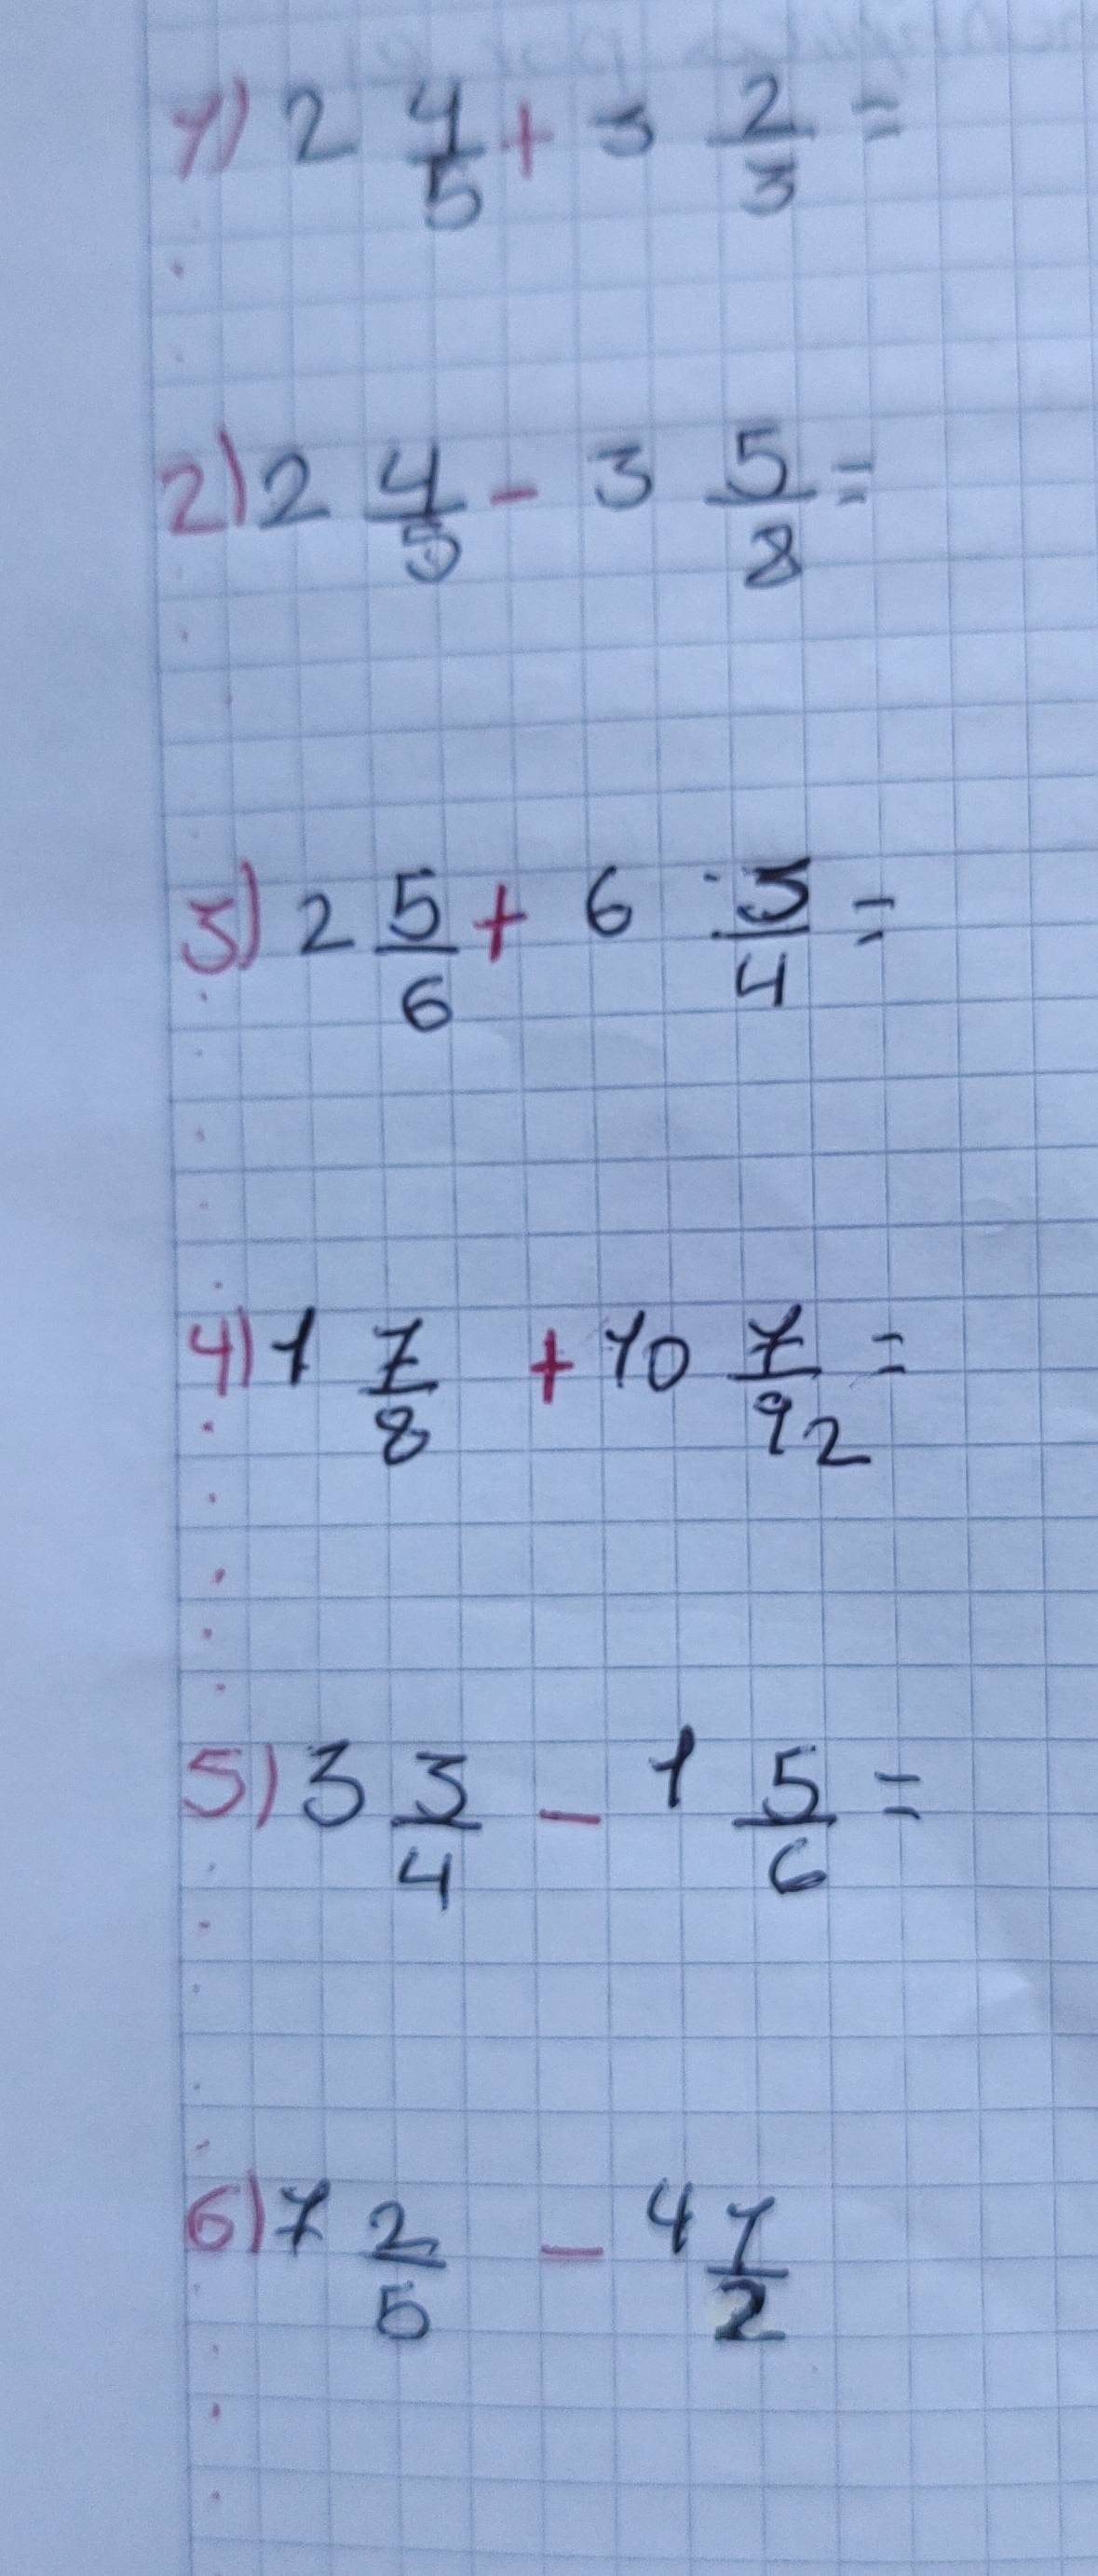 1) 2 4/5 + 3 2/3 =
2) 2 4/5 - 3 5/8 =
3) 2 5/6 + 6 3/4 =
4) 1 7/8 + 10 7/92 =
5) 3 3/4 - 1 5/6 =
6) 7 2/5 - 4 1/2